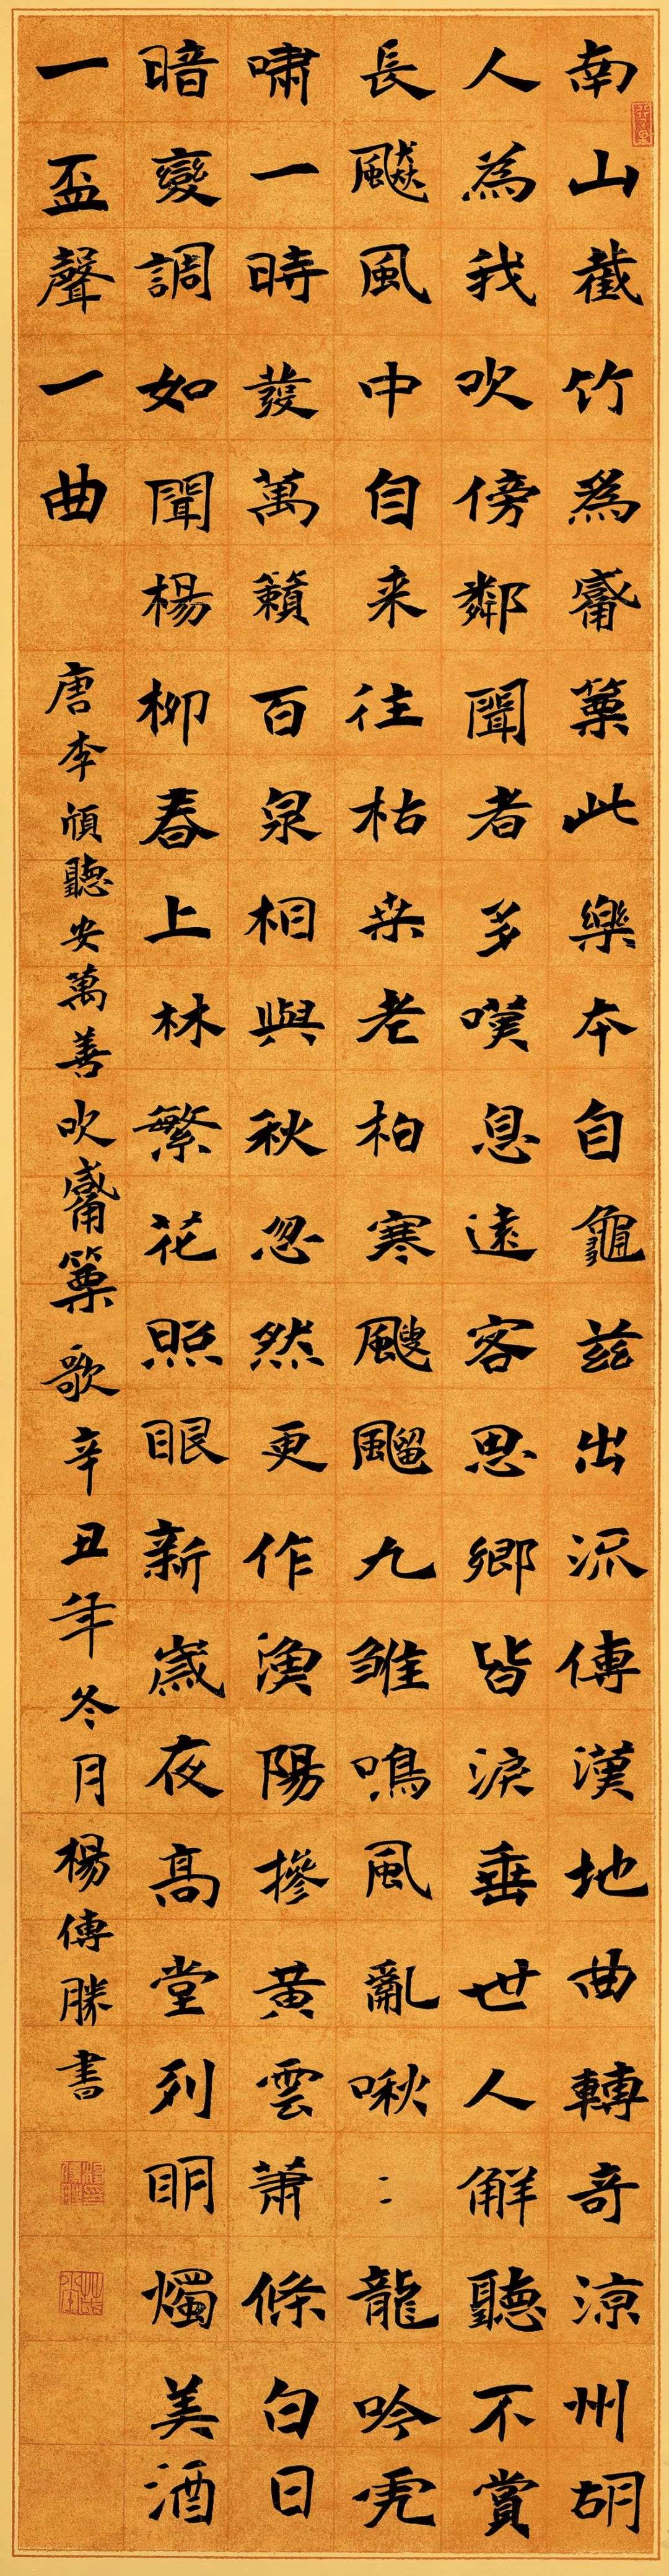 南山截竹為觱篥此樂本自龜茲出流傳漢地曲轉奇涼州胡
人為我吹傍鄰聞者多嘆息遠客思鄉皆淚垂世人解聽不賞
長飈風中自来往枯桒老柏寒颼飀九雛鳴風亂啾〻龍吟虎
嘯一時發萬籟百泉相與秋忽然更作漁陽摻黃雲蕭條白日
暗變調如聞楊柳春上林繁花照眼新歲夜高堂列明燭美酒
一盃聲一曲
唐李頎聽安萬善吹觱篥歌辛丑年冬月楊傳勝書